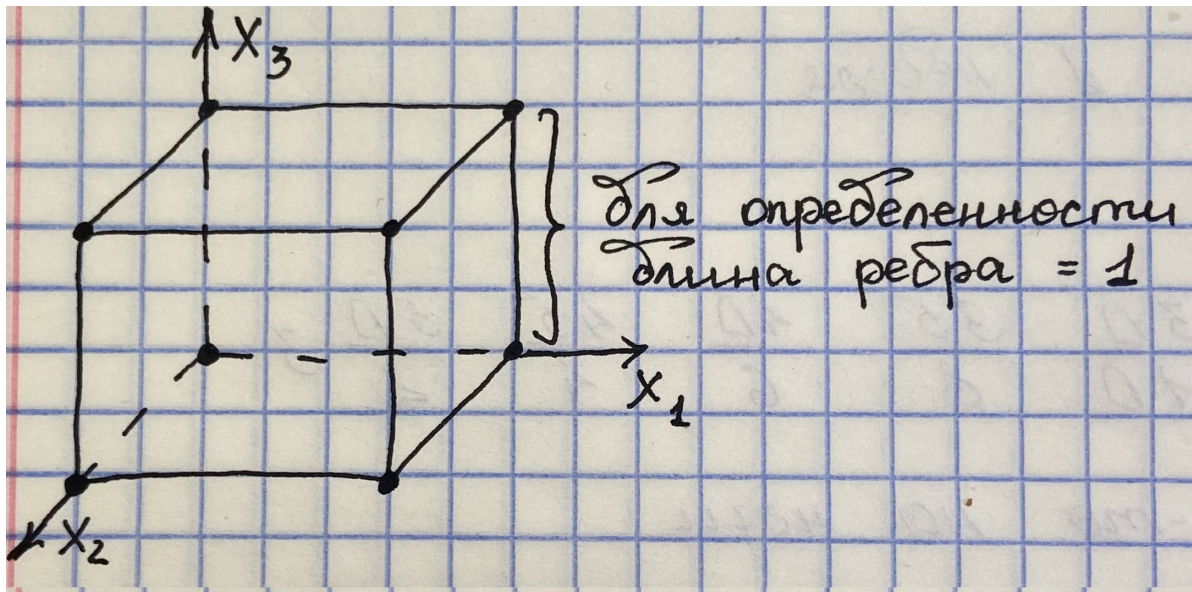 X₃
для определенности
длина ребра = 1
X₁
X₂